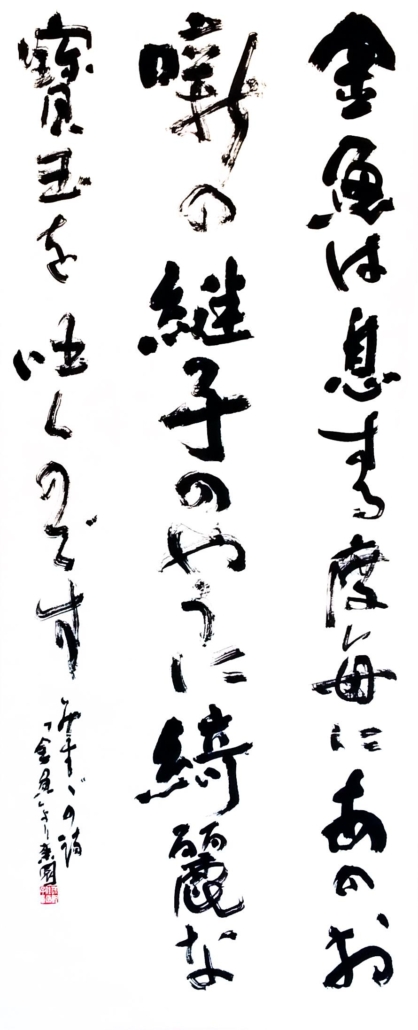 金魚は息する度毎にあのお
噺の継子のやうに綺麗な
寳玉を吐くのです
みすゞの詩
「金魚」より